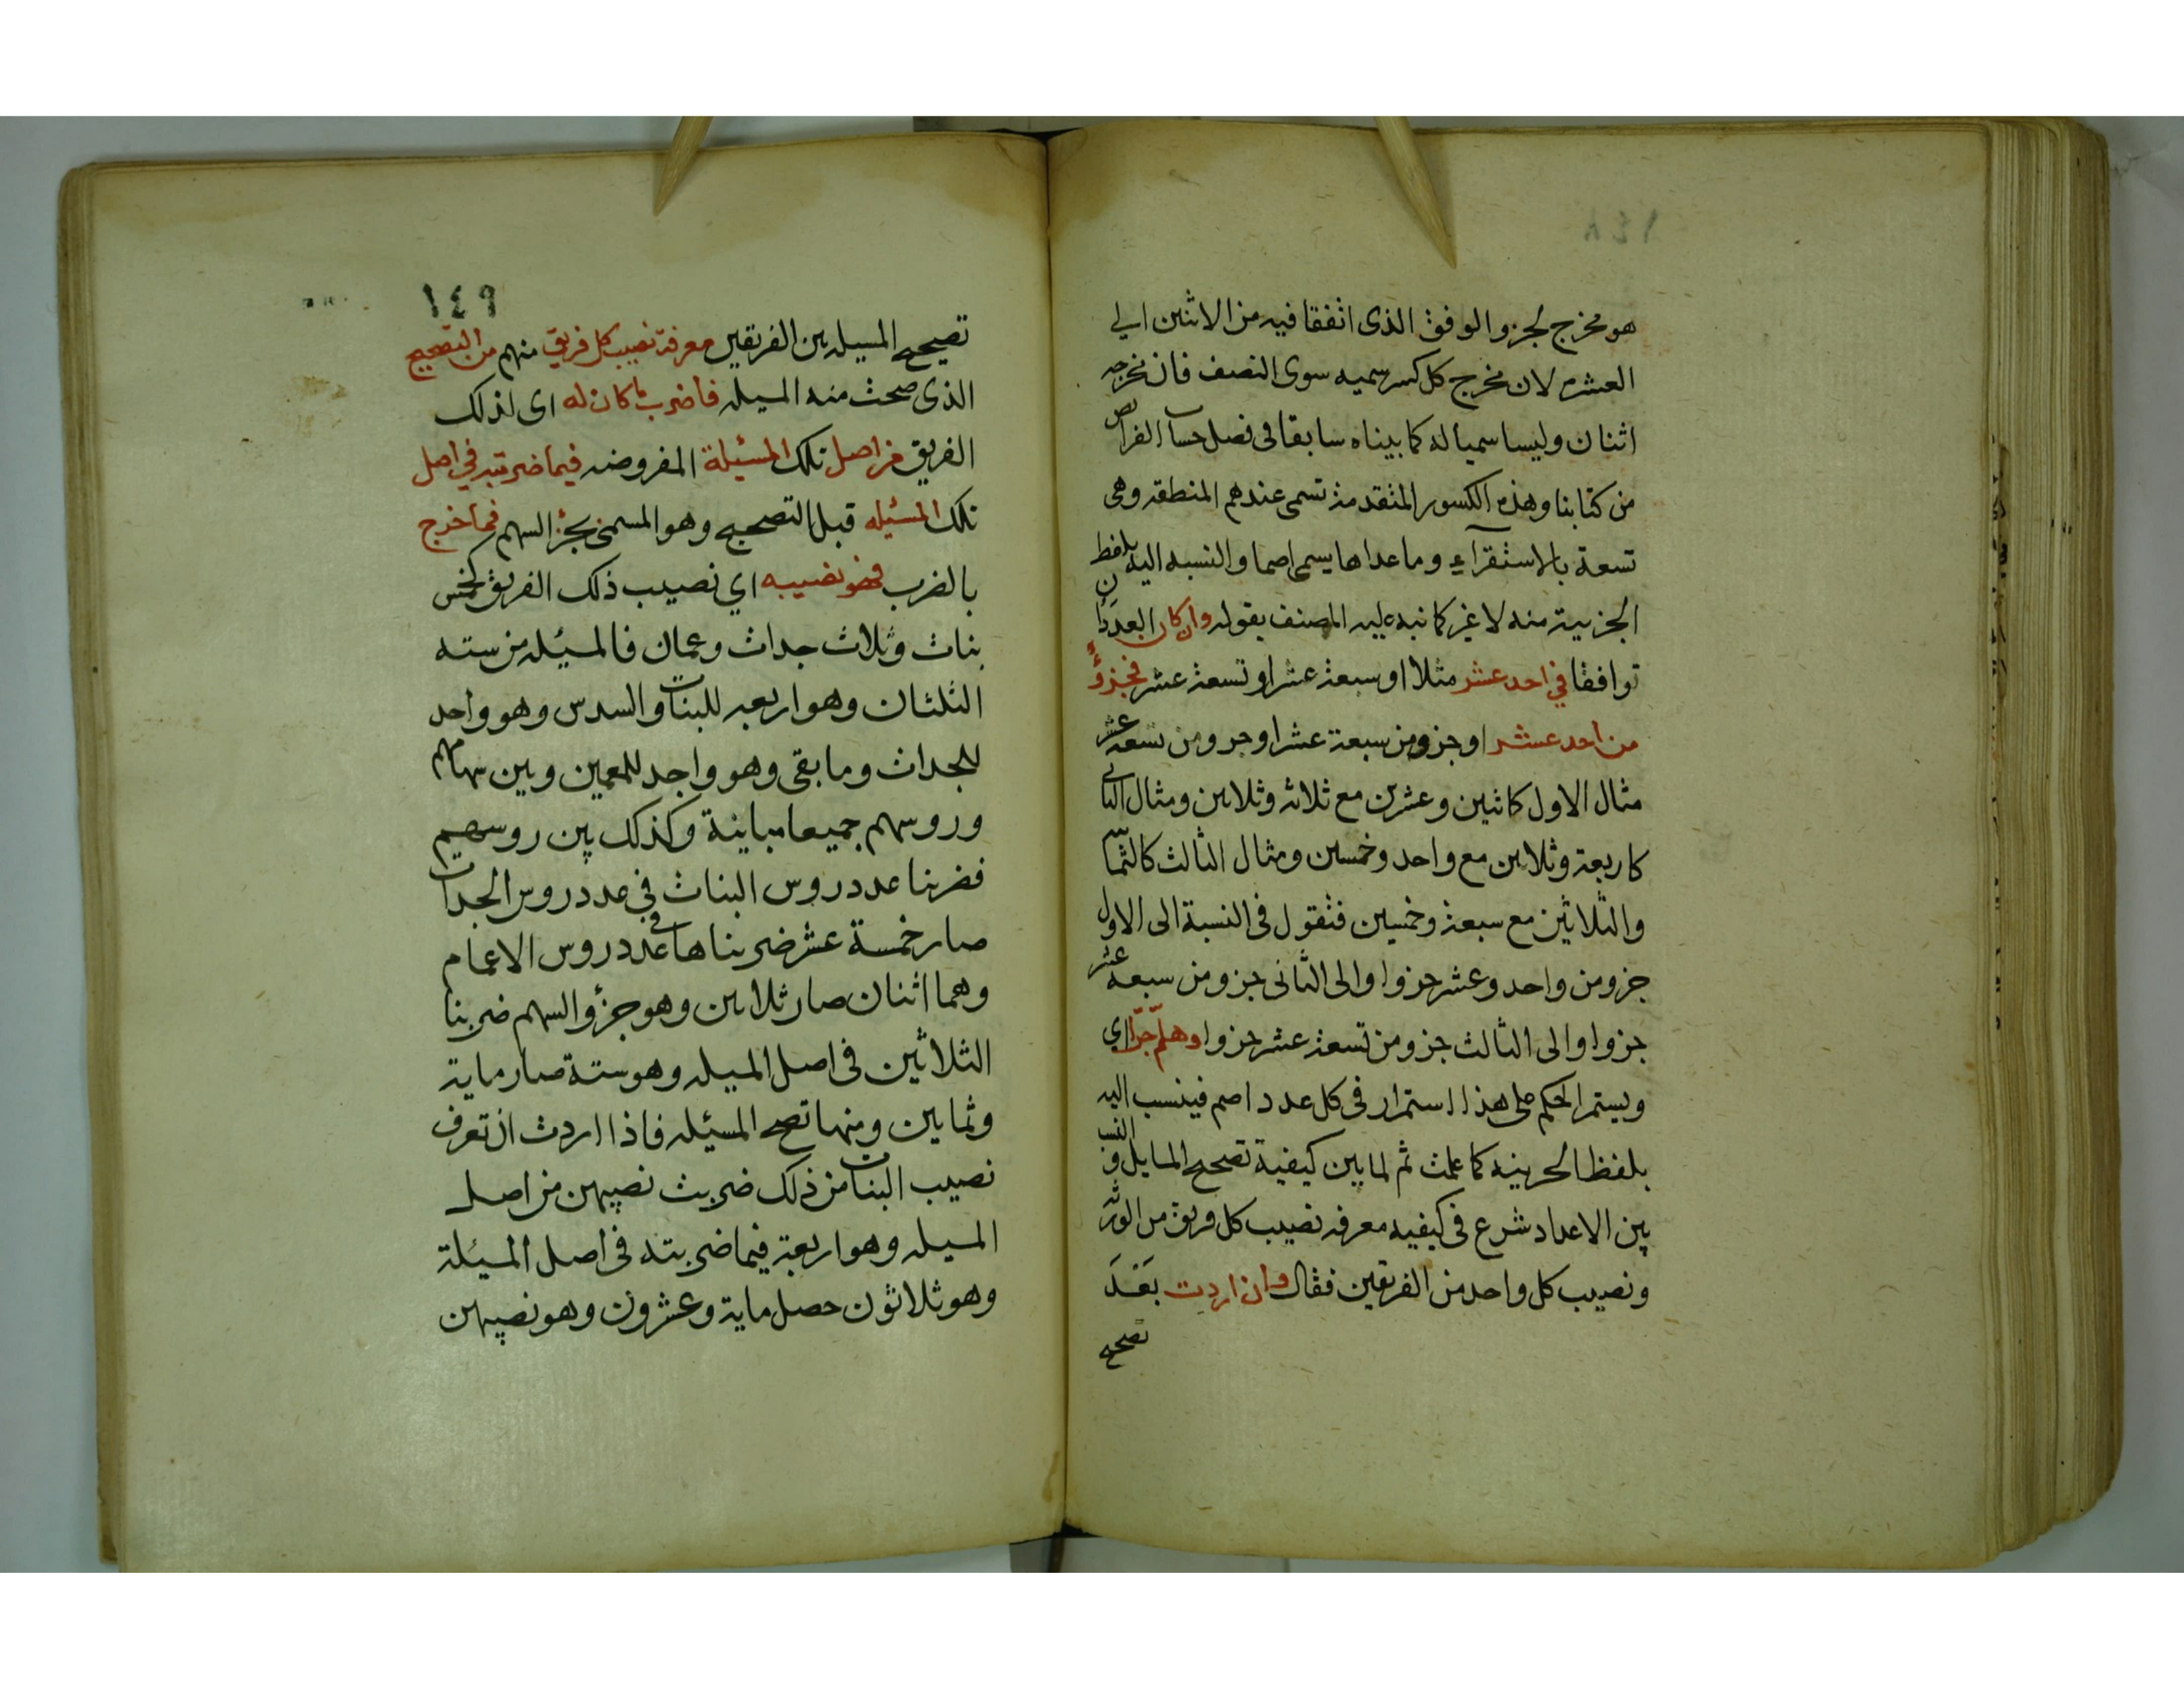 هو مخرج لجزو الوفق الذى اتفقا فيه من الاثنين الي
العشره لان مخرج كل كسر سميه سوى النصف فان مخرجه
اثنان وليسا سميا له كما بيناه سابقا فى فصل حساب الفرايض
من كتابنا وهذه الكسور المتقدمة تسمى عندهم المنطقه وهى
تسعة بالاستقراء وما عداها يسمى اصما والنسبه اليه بلفظ
الجزيية منه لا غير كما نبه عليه المصنف بقوله وان كان العددان
توافقا في احد عشر مثلا او سبعة عشر او تسعة عشر فجزؤ
من احد عشر او جزو من سبعة عشر او جزو من تسعة عشر
مثال الاول كاثنين وعشرين مع ثلاثه وثلاثين ومثال الثانى
كاربعة وثلاثين مع واحد وخمسين ومثال الثالث كالثمانية
والثلاثين مع سبعة وخمسين فتقول فى النسبة الى الاول
جزو من واحد وعشر جزوا والى الثانى جزو من سبعة عشر
جزوا والى الثالث جزو من تسعة عشر جزوا وهلم جرا اي
ويستمر الحكم على هذا استمرار فى كل عدد اصم فينسب اليه
بلفظ الجزييه كما علمت ثم لما بين كيفية تصحيح المسايل والنسب
بين الاعداد شرع فى كيفيه معرفه نصيب كل فريق من الورثة
ونصيب كل واحد من الفريقين فقال وان اردت بعد
تصحيح
١٤٩
تصحيح المسيله بين الفريقين معرفة نصيب كل فريق منهم من التصحيح
الذى صحت منه المسيله فاضرب ما كان له اى لذلك
الفريق من اصل تلك المسئيلة المفروضه فيما ضربته في اصل
تلك المسئيله قبل التصحيح وهو المسمى بجزؤ السهم فما خرج
بالضرب فهو نصيبه اي نصيب ذلك الفريق كخمس
بنات وثلاث جدات وعمان فالمسيئله من سته
الثلثان وهو اربعه للبنات والسدس وهو واحد
للجدات وما بقى وهو واحد للعمين وبين سهامهم
وروسهم جميعا مباينة وكذلك بين روسهم
فضربنا عدد روس البنات في عدد روس الجدات
صار خمسة عشر ضربناها فى عدد روس الاعمام
وهما اثنان صار ثلاثين وهو جزؤ السهم ضربنا
الثلاثين فى اصل المسيله وهو ستة صار ماية
وثمانين ومنها تصح المسئيله فاذا اردت ان تعرف
نصيب البنات من ذلك ضربت نصيبهن من اصل
المسيله وهو اربعة فيما ضربته فى اصل المسيئلة
وهو ثلاثون حصل ماية وعشرون وهو نصيبهن